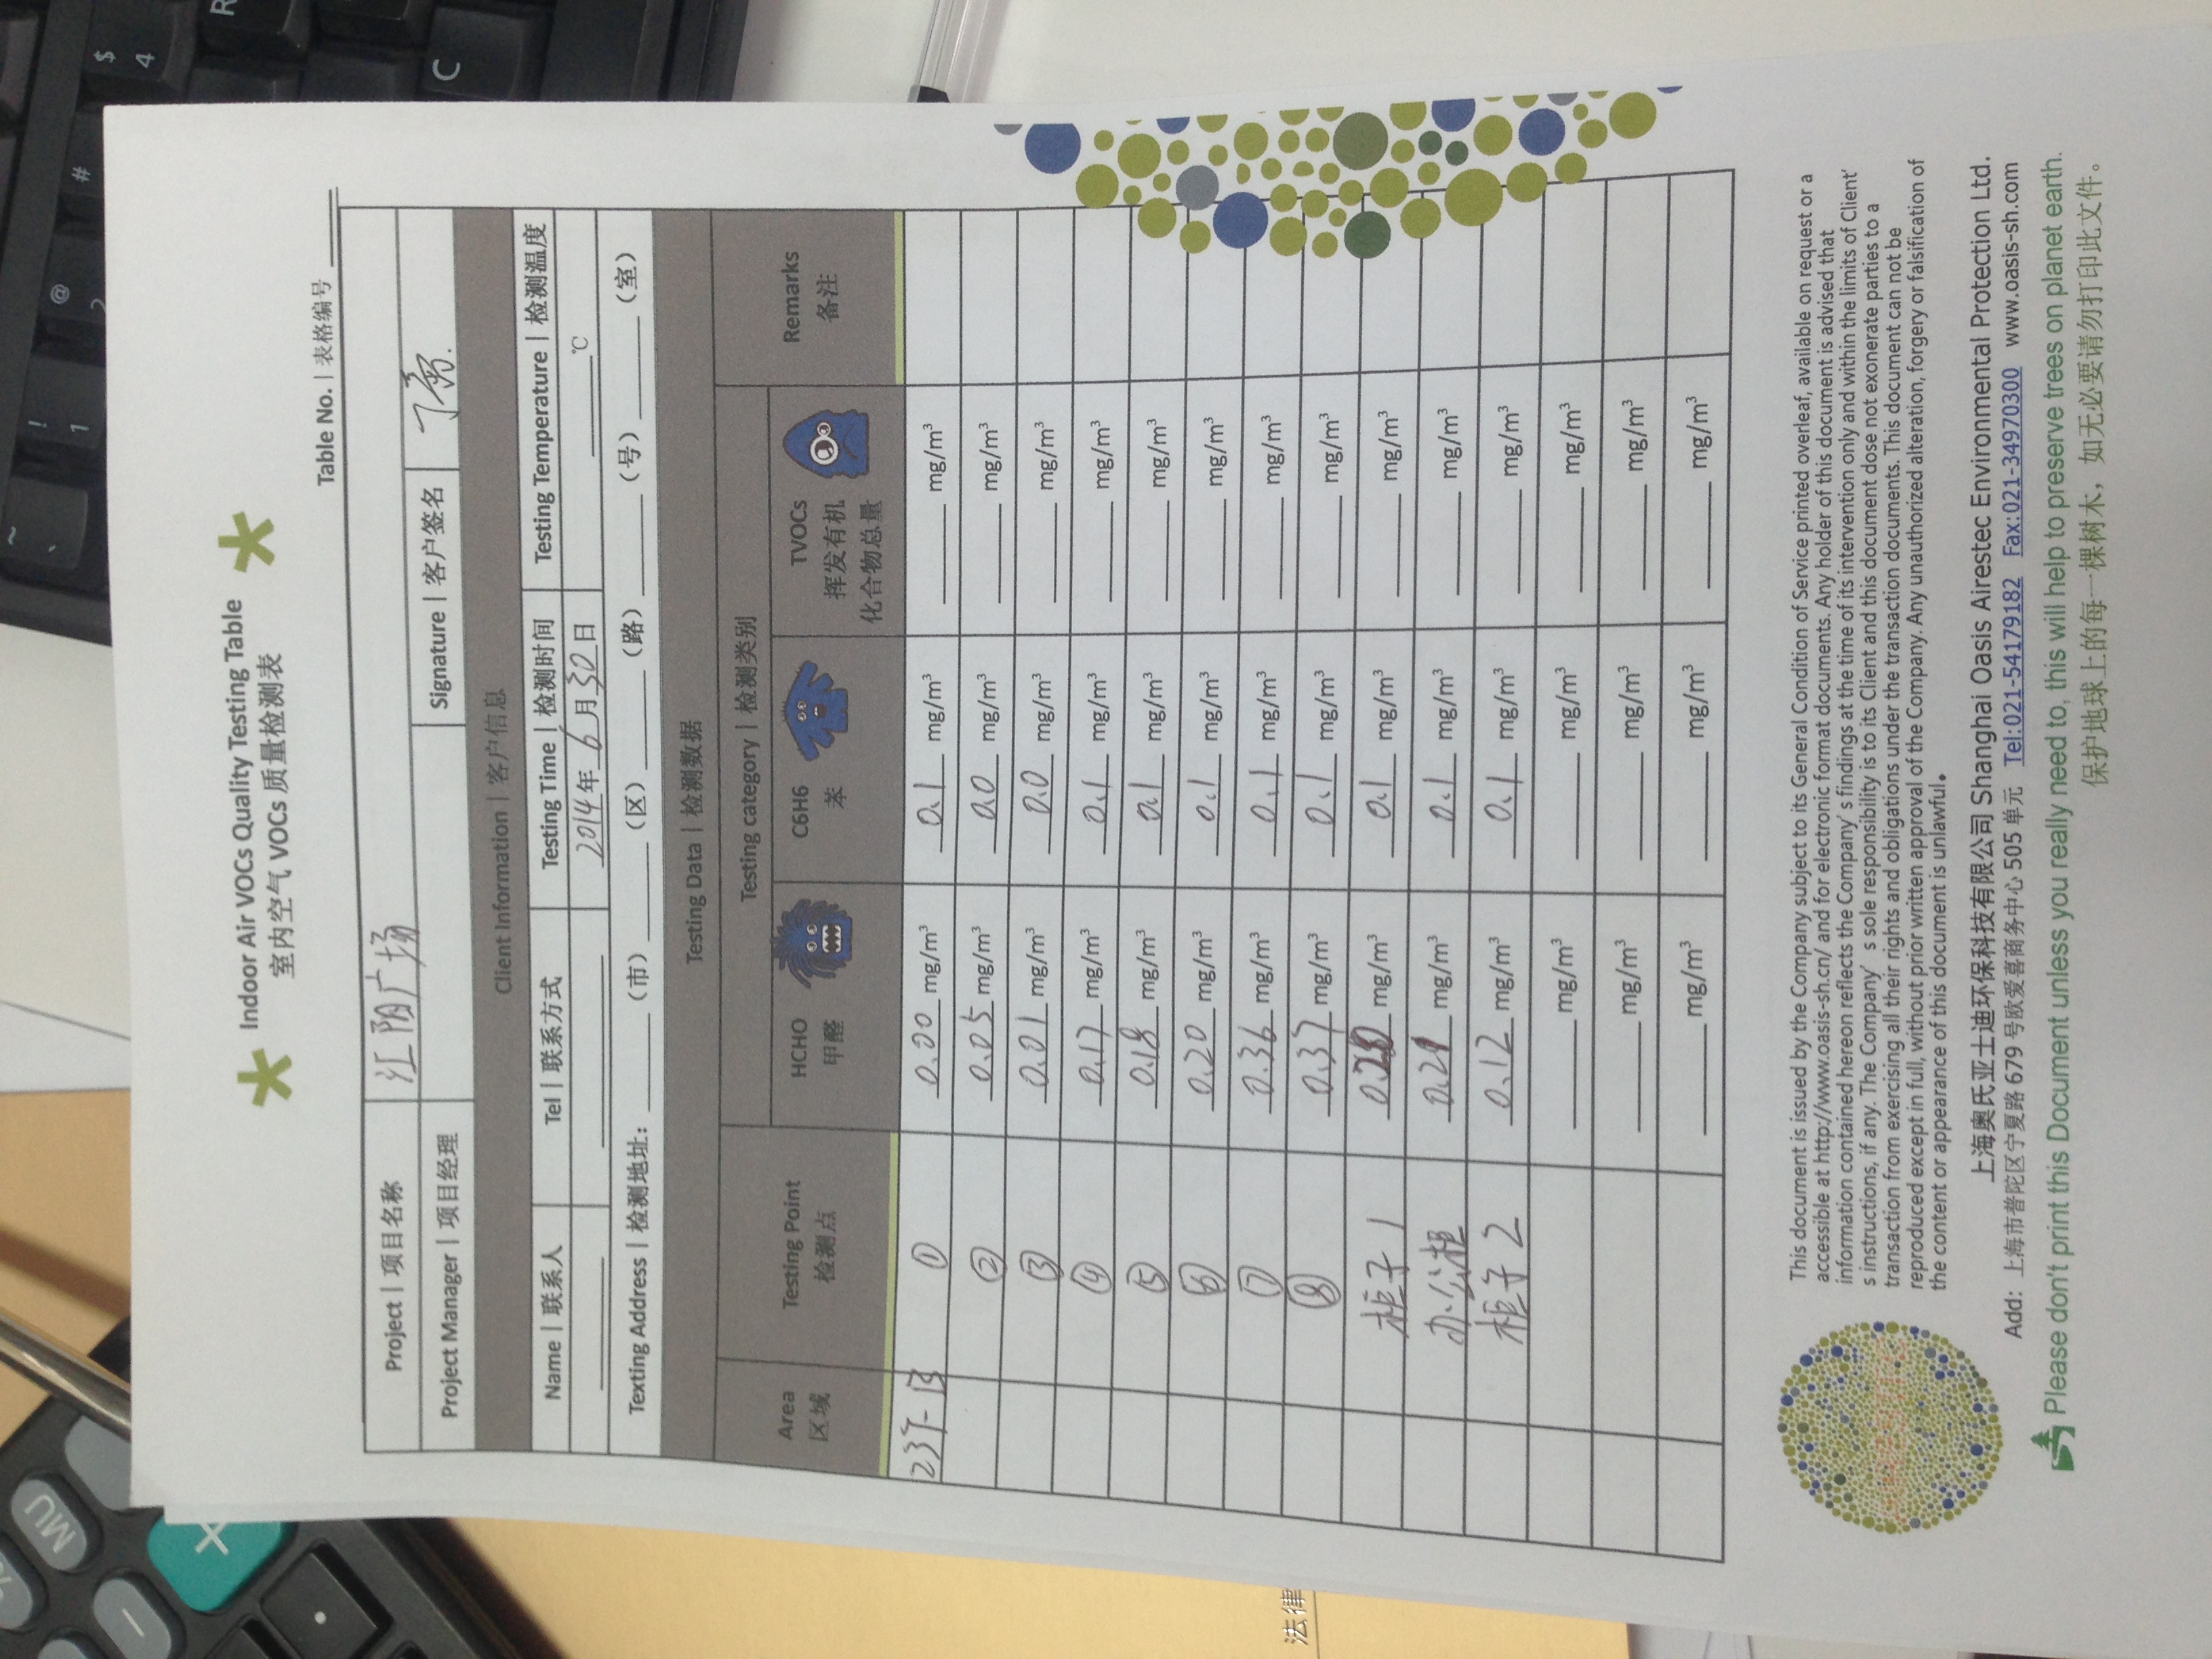 MU
~
`
!
1
@
2
#
$
4
R
C
法律
Indoor Air VOCs Quality Testing Table
室内空气 VOCs 质量检测表
Table No.|表格编号
Project|项目名称 汇阳广场
Project Manager|项目经理 Signature|客户签名
Client Information|客户信息
Name|联系人 Tel|联系方式 Testing Time|检测时间 Testing Temperature|检测温度
2014年 6月30日 ℃
Texting Address|检测地址: (市) (区) (路) (号) (室)
Testing Data|检测数据
Testing category|检测类别
Area 区域 Testing Point 检测点 HCHO 甲醛 C6H6 苯 TVOCs 挥发有机化合物总量 Remarks 备注
① 0.00 mg/m³ 0.1 mg/m³ mg/m³
② 0.05 mg/m³ 0.0 mg/m³ mg/m³
③ 0.01 mg/m³ 0.0 mg/m³ mg/m³
④ 0.17 mg/m³ 0.1 mg/m³ mg/m³
⑤ 0.18 mg/m³ 0.1 mg/m³ mg/m³
⑥ 0.20 mg/m³ 0.1 mg/m³ mg/m³
⑦ 0.36 mg/m³ 0.1 mg/m³ mg/m³
⑧ 0.37 mg/m³ 0.1 mg/m³ mg/m³
柜子1 mg/m³ 0.1 mg/m³ mg/m³
办公柜 0.21 mg/m³ 0.1 mg/m³ mg/m³
柜子2 0.12 mg/m³ 0.1 mg/m³ mg/m³
mg/m³ mg/m³ mg/m³
mg/m³ mg/m³ mg/m³
mg/m³ mg/m³ mg/m³
This document is issued by the Company subject to its General Condition of Service printed overleaf, available on request or a
accessible at http://www.oasis-sh.cn/ and for electronic format documents. Any holder of this document is advised that
information contained hereon reflects the Company' s findings at the time of its intervention only and within the limits of Client'
s instructions, if any. The Company' s sole responsibility is to its Client and this document dose not exonerate parties to a
transaction from exercising all their rights and obligations under the transaction documents. This document can not be
reproduced except in full, without prior written approval of the Company. Any unauthorized alteration, forgery or falsification of
the content or appearance of this document is unlawful.
上海奥氏亚士迪环保科技有限公司 Shanghai Oasis Airestec Environmental Protection Ltd.
Add: 上海市普陀区宁夏路 679 号欧爱喜商务中心 505 单元 Tel:021-54179182 Fax:021-34970300 www.oasis-sh.com
Please don't print this Document unless you really need to, this will help to preserve trees on planet earth.
保护地球上的每一棵树木，如无必要请勿打印此文件。